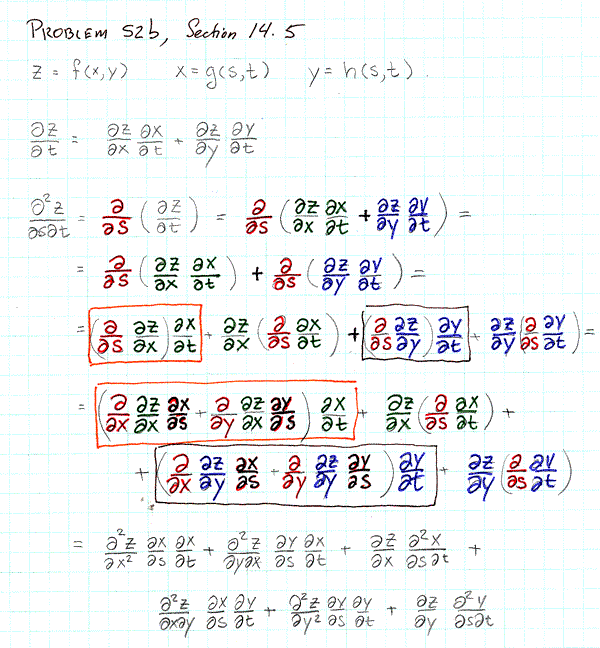 PROBLEM 52b, Section 14.5
z = f(x,y) x = g(s,t) y = h(s,t).
∂z/∂t = ∂z/∂x ∂x/∂t + ∂z/∂y ∂y/∂t
∂²z/∂s∂t = ∂/∂s (∂z/∂t) = ∂/∂s (∂z/∂x ∂x/∂t + ∂z/∂y ∂y/∂t) =
= ∂/∂s (∂z/∂x ∂x/∂t) + ∂/∂s (∂z/∂y ∂y/∂t) =
= (∂/∂s ∂z/∂x) ∂x/∂t + ∂z/∂x (∂/∂s ∂x/∂t) + (∂/∂s ∂z/∂y) ∂y/∂t + ∂z/∂y (∂/∂s ∂y/∂t) =
= (∂/∂x ∂z/∂x ∂x/∂s + ∂/∂y ∂z/∂x ∂y/∂s) ∂x/∂t + ∂z/∂x (∂/∂s ∂x/∂t) +
+ (∂/∂x ∂z/∂y ∂x/∂s + ∂/∂y ∂z/∂y ∂y/∂s) ∂y/∂t + ∂z/∂y (∂/∂s ∂y/∂t)
= ∂²z/∂x² ∂x/∂s ∂x/∂t + ∂²z/∂y∂x ∂y/∂s ∂x/∂t + ∂z/∂x ∂²x/∂s∂t +
∂²z/∂x∂y ∂x/∂s ∂y/∂t + ∂²z/∂y² ∂y/∂s ∂y/∂t + ∂z/∂y ∂²y/∂s∂t